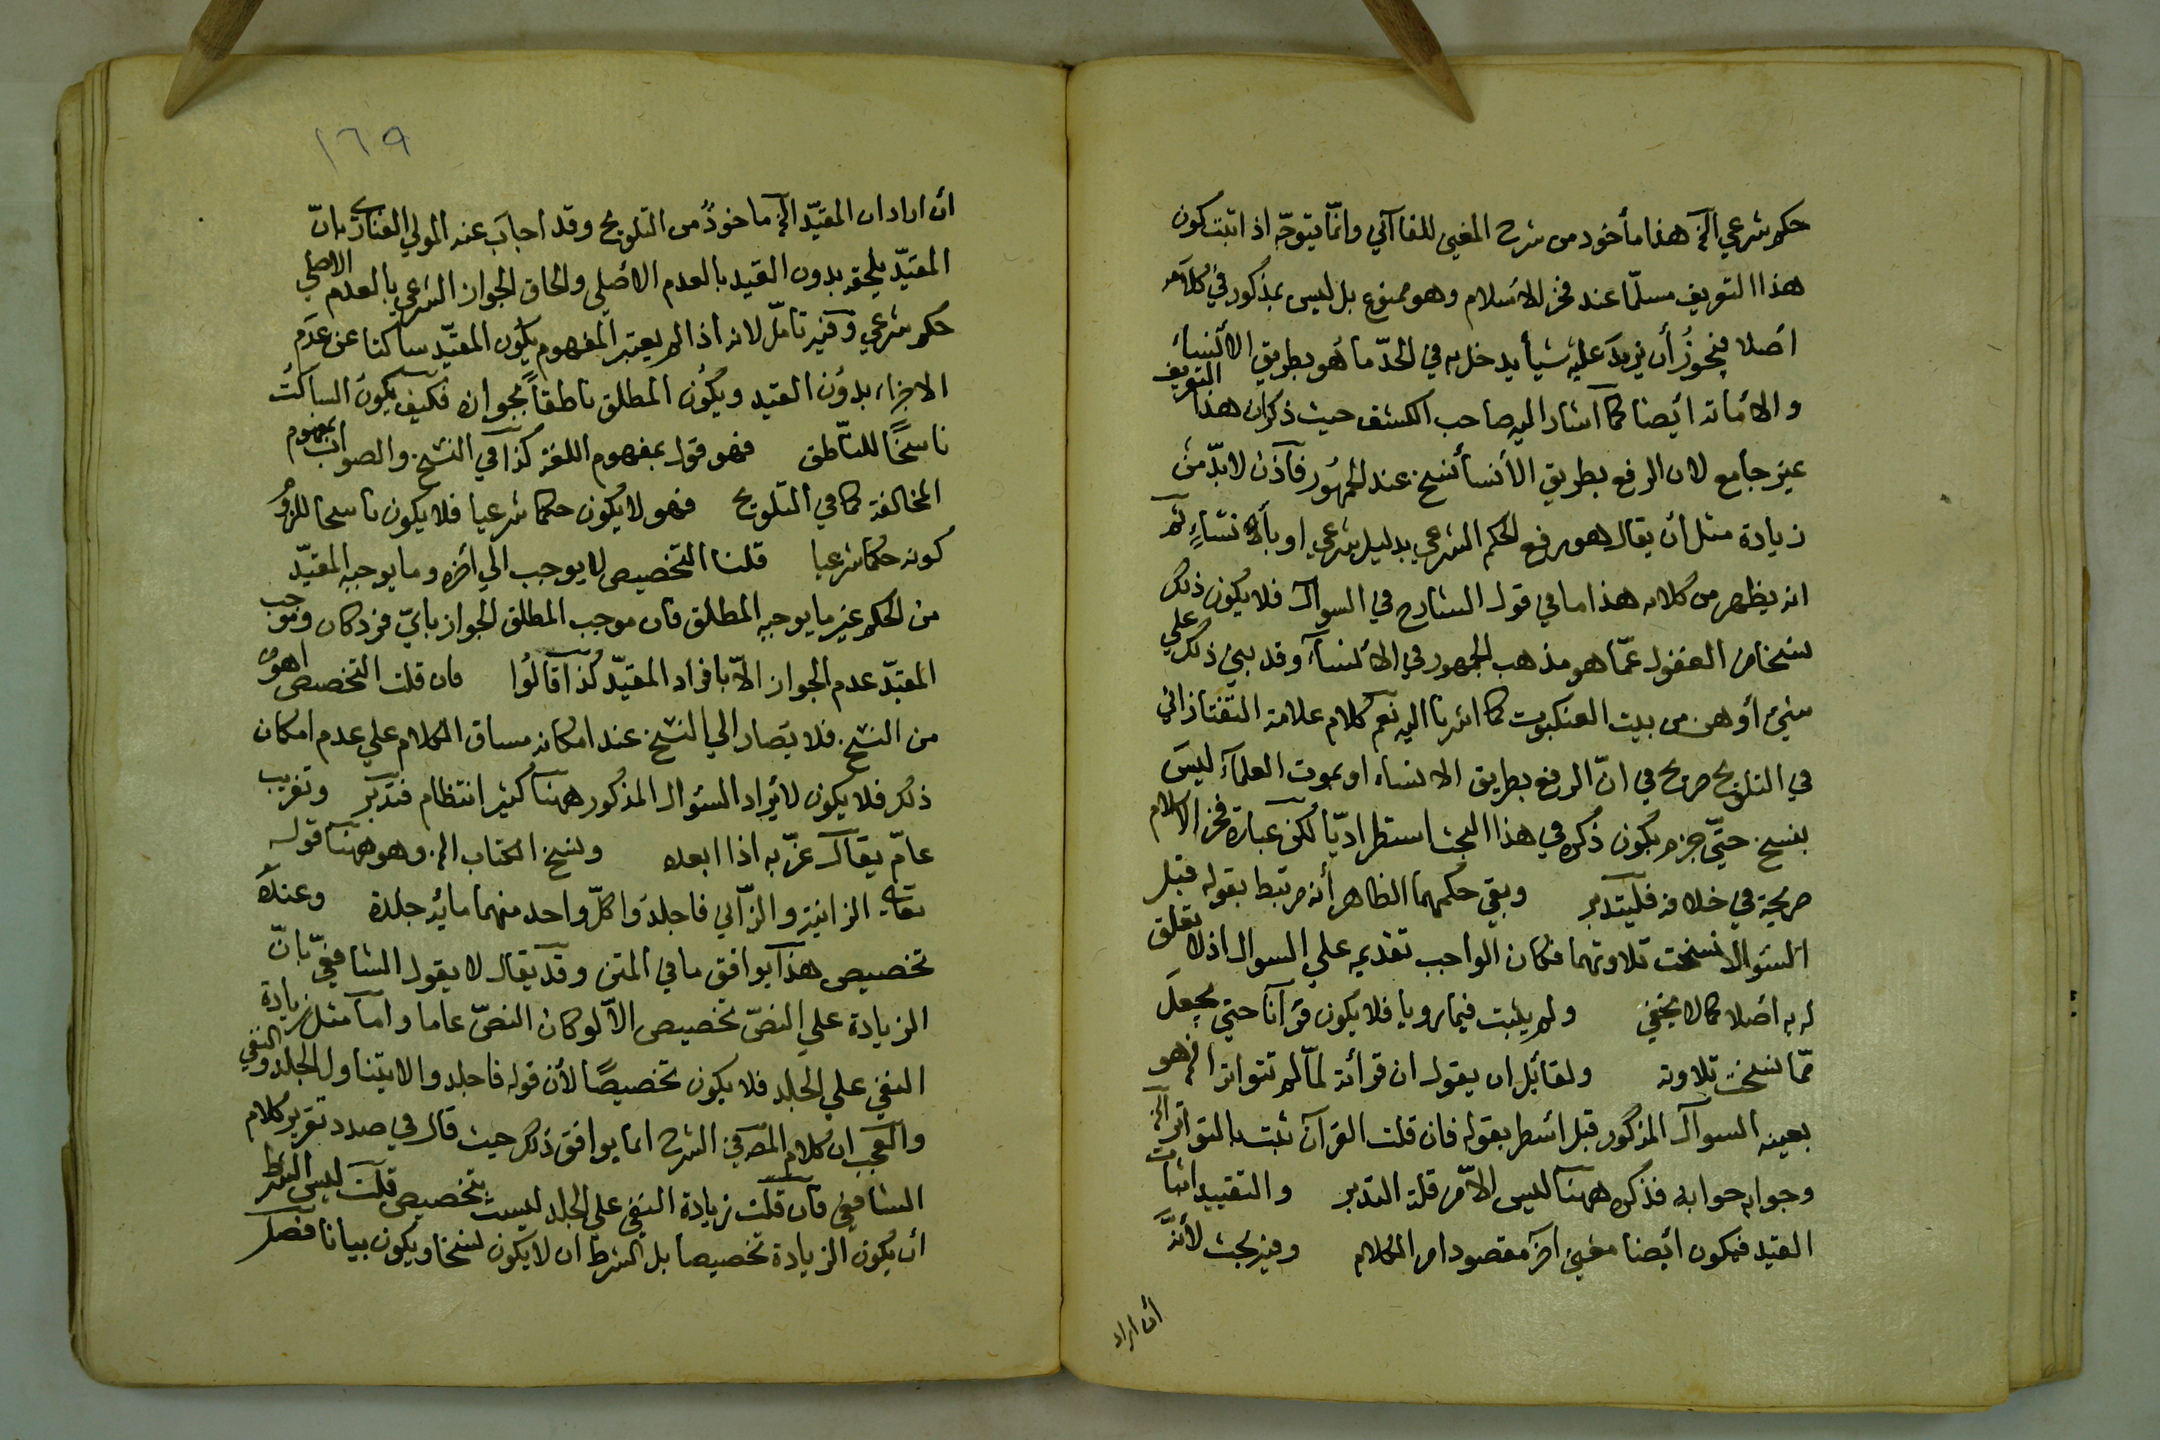 حكم شرعي الخ هذا مأخود من شرح المغني للقاآني وانّما يتوجّه اذ اثبت كون
هذا التعريف مسلّما عند فخر الاسلام وهو ممنوع بل ليس بمذكور في كلامه
اصلا فيجوز أن يزيد عليه شيأ يدخل به في الحدّ ما هو بطريق الانساء
والاماتة ايضا كما اشار اليه صاحب الكشف حيث ذكر ان هذا التعريف
غير جامع لان الرفع بطريق الأنسأ نسخ عند الجمهور فاذن لا بدّ من
زيادة مثل ان يقال هو رفع الحكم الشرعي بدليل شرعي او بألانساءٍ ثم
انه يظهر من كلامه هذا ما في قول الشارح في السوال فلا يكون ذلك
نسخا من الغفول عمّا هو مذهب الجمهور في الانساء وقد بني ذلك علي
شيئ أوهن من بيت العنكبوت كما اشرنا اليه نعم كلام علامة التفتازاني
في التلويح صريح في انّ الرفع بطريق الانساء او بموت العلماء ليس
بنسخ حتّي جزم بكون ذكره في هذا البحث استطراديّا لكن عبارة فخر الاسلام
صريحة في خلافه فليتدبر وبقي حكمهما الظاهر أنه مرتبط بقوله قبل
السئوال نسخت تلاوتهما فكان الواجب تقديمه علي السوال اذ لا تعلق
له به اصلا كما لا يخفي ولم يثبت فيما رويا فلا يكون قرآنا حتي يجعل
ممّا نسخت تلاوته ولقائل ان يقول ان قرائة لمّا لم تتواتر الخ هو
بعينه السوال المذكور قبل اسطر بقوله فان قلت القرآن ثبت بالتواتر الخ
وجوابه جوابه فذكره ههنا ليس الاّ من قلة التدبر والتقييد اثبات
القيد فيكون أيضا معني اخر مقصودا من الكلام وفيه بحث لأنّه
أن اراد
١٦٩
ان اراد ان المقيّد الخ ماخوذ من التلويح وقد اجاب عنه المولي الفناري بانّ
المقيّد يلحقه بدون القيد بالعدم الاصلي والحاق الجواز الشرعي بالعدم الاصلي
حكم شرعي وفيه تامّل لانه اذا لم يعتبر المفهوم يكون المقيّد ساكتا عن عدم
الاجزاء بدون القيد ويكون المطلق ناطقاً بجوازه فكيف يكون الساكت
ناسخًا للنّاطق فهو قول بمفهوم اللغة كذا في النسخ والصواب بمفهوم
المخالفة كما في التلويح فهو لا يكون حكما شرعيا فلا يكون ناسخا للزوم
كونه حكما شرعيا قلنا التخصيص لا يوجب الي أخره وما يوجبه المقيّد
من الحكم غير ما يوجبه المطلق فان موجب المطلق الجواز بايّ فرد كان وموجب
المقيّد عدم الجواز الاّ بافراد المقيّد كذا قالوا فان قلت التخصيص اهون
من النسخ فلا يصار الي النسخ عند امكانه مساق الكلام علي عدم امكان
ذلك فلا يكون لايراد السئوال المذكور ههنا كثير انتظام فتدبر وتغريب
عامّ يقال غرّبه اذا ابعده ونسخ الكتاب الخ وهو ههنا قوله
تعالي الزانية والزّاني فاجلدوا كلّ واحد منهما مائة جلدة وعنده
تخصيص هذا يوافق ما في المتن وقد يقال لا يقول الشافعيّ بانّ
الزيادة علي النصّ تخصيص الاّ لو كان النصّ عاما واما مثل زيادة
النفي علي الجلد فلا يكون تخصيصًا لأن قوله فاجلدوا لا يتناول الجلد والنفي
والعجب ان كلام المص في الشرح انما يوافق ذلك حيث قال في صدد تقرير كلام
الشافعي فان قلت زيادة النفي علي الجلد ليست بتخصيص قلت ليس الشرط
ان يكون الزيادة تخصيصا بل الشرط ان لا يكون نسخا ويكون بيانا فصل